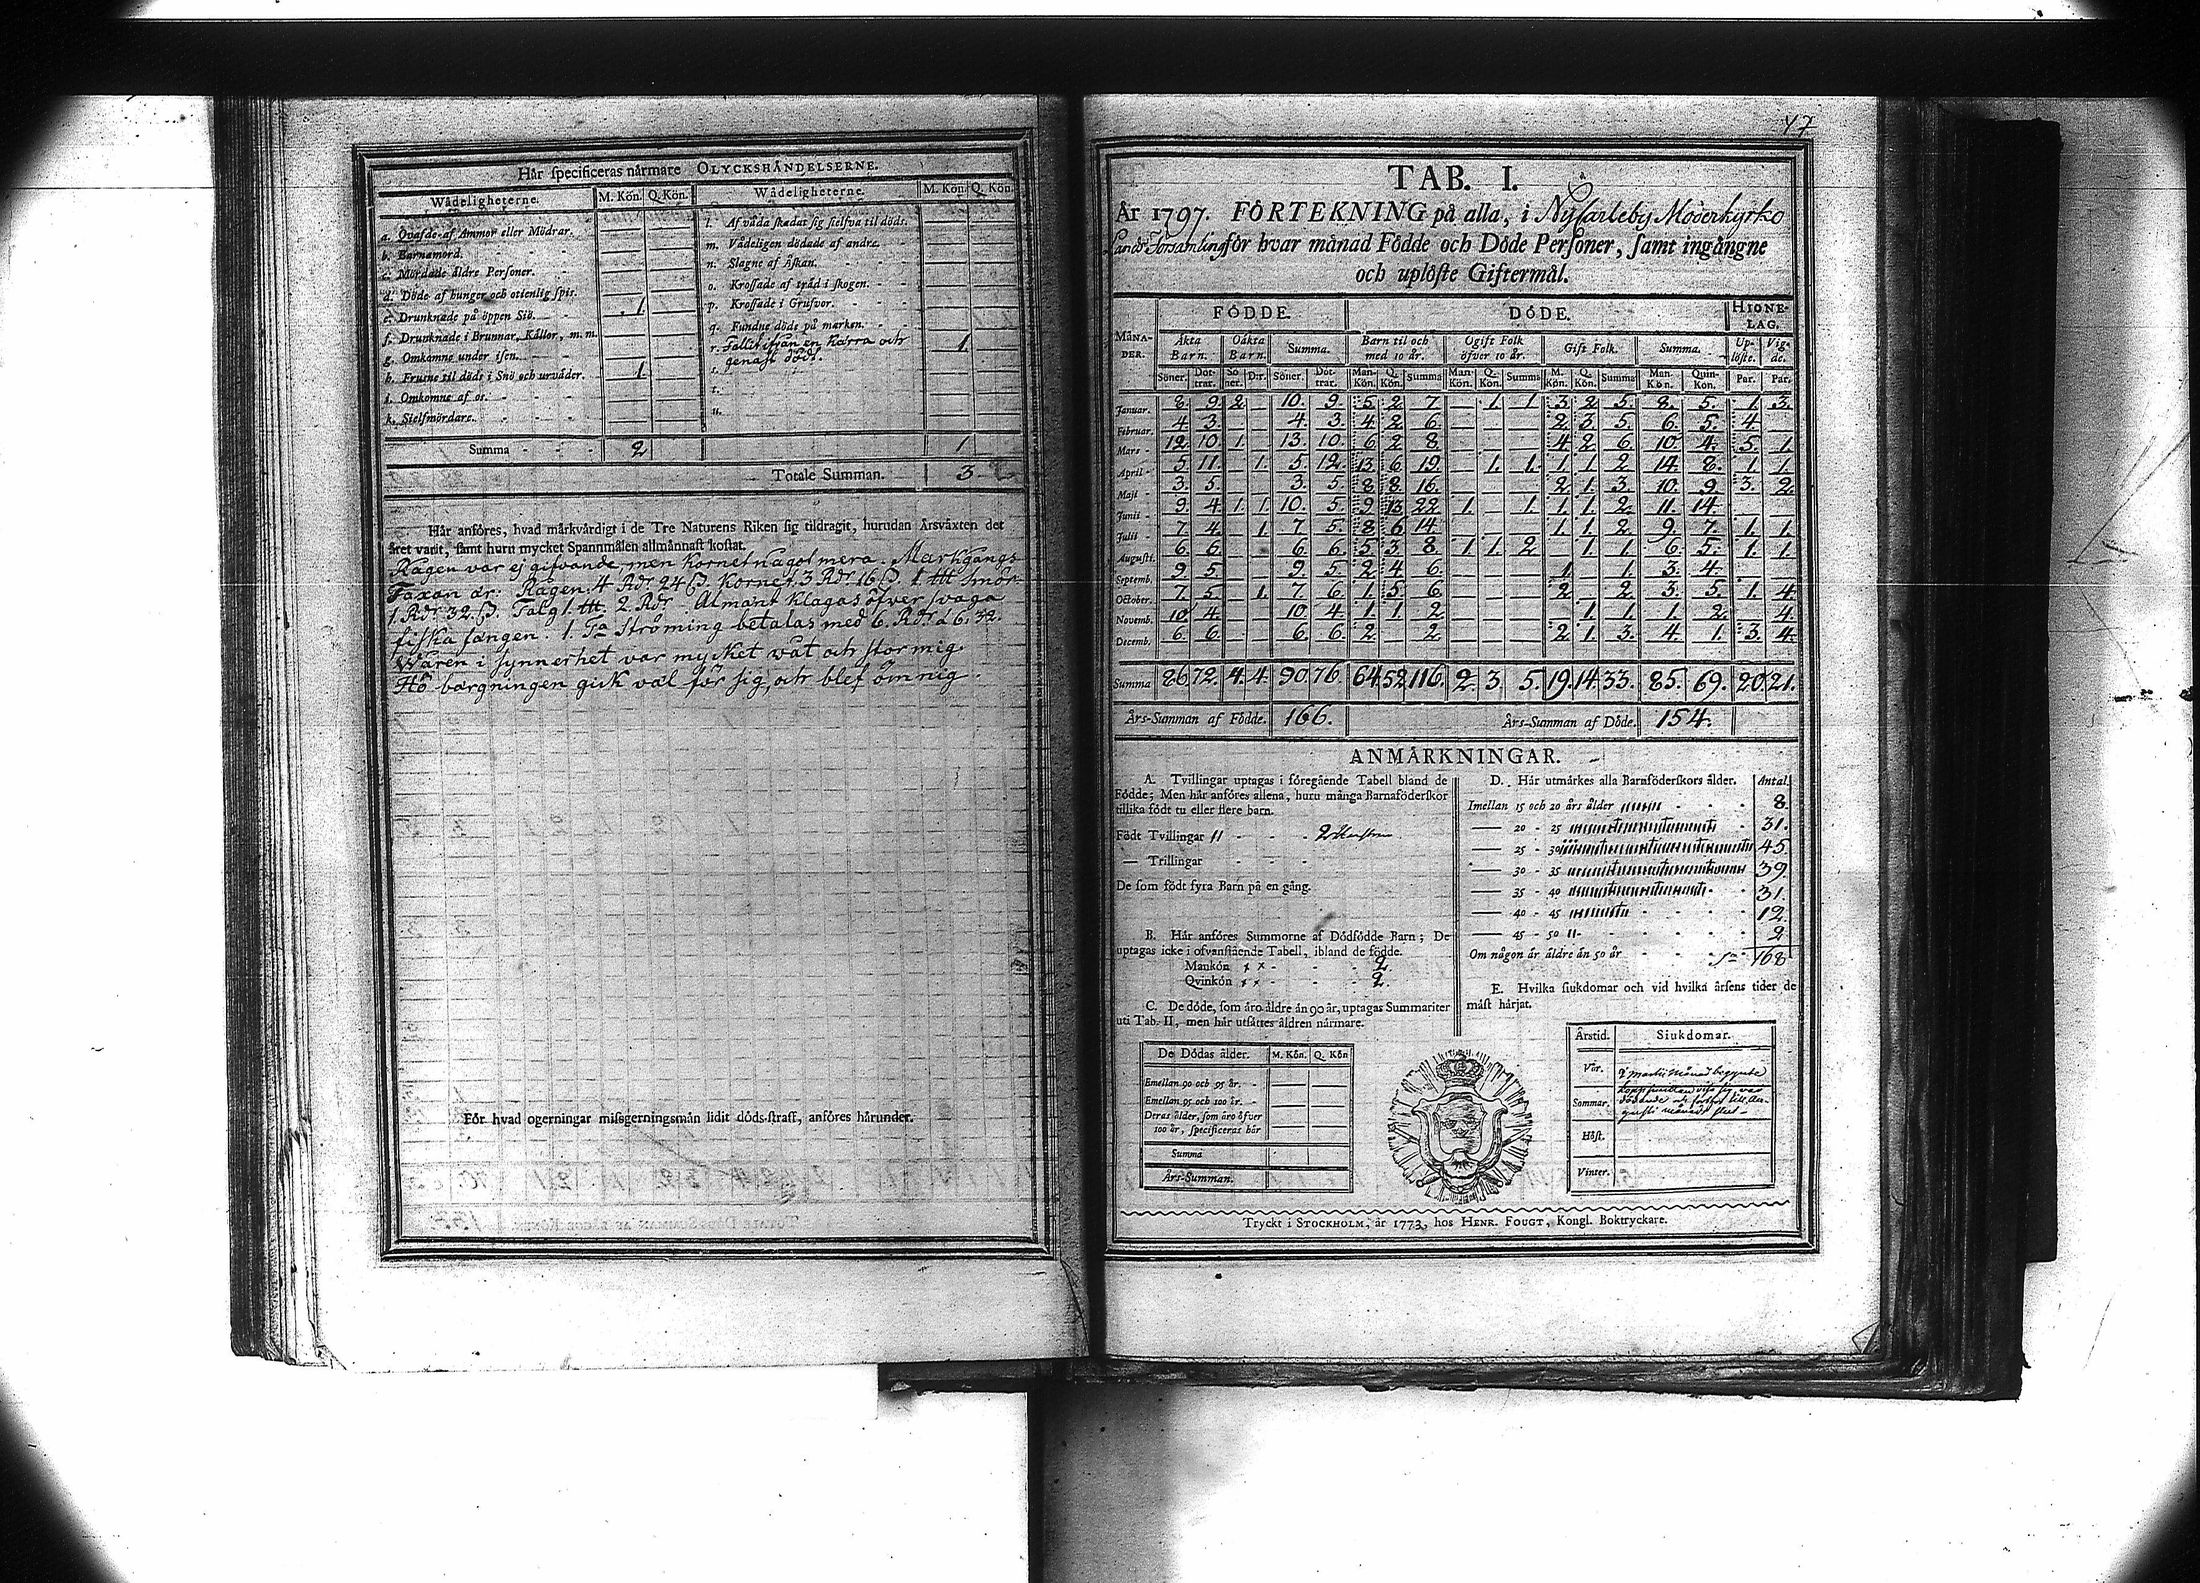 Här specificeras närmare OLYCKSHÄNDELSERNE.
Wådeligheterne. M. Kön. Q. Kön. Wådeligheterne. M. Kön. Q. Kön.
a. Qvafde af Ammor eller Mödrar.
b. Barnamord.
c. Mördade äldre Personer.
d. Döde af hunger och otienlig spis.
e. Drunknade på öppen Siö. 1.
f. Drunknade i Brunnar, Källor, m. m.
g. Omkomne under isen.
h. Frusne til döds i Snö och urväder. 1.
i. Omkomne af os.
k. Sielfmördare.
l. Af våda skadat sig sielfva til döds.
m. Vådeligen dödade af andre.
n. Slagne af Åskan.
o. Krossade af träd i skogen.
p. Krossade i Grufvor.
q. Fundne döde på marken.
r. Fallit ifrån en Kärra och 1.
genast dödt.
s.
t.
u.
Summa 2 1
Totale Summan. 3
Här anföres, hvad märkvärdigt i de Tre Naturens Riken sig tildragit, hurudan Årsväxten det
året varit, samt huru mycket Spannmålen allmännast kostat.
Rågen var ej gifvande, men Kornet något mera. Markgångs
Taxan är: Rågen. 4 Rdr 24 ß. Kornet. 3 Rdr 16 ß. 1. ℔ Smör
1. Rdr. 32. ß. Talg 1. ℔. 2. Rdr. Almänt Klagas öfver svaga
fiska fången. 1. Ta Strömming betalas med 6. Rdr. a 6. 32.
Wåren i synnerhet var mycket våt och stormig.
Hö-bärgningen gick väl för sig, och blef ömnig.
För hvad ogerningar missgerningsmän lidit döds-straff, anföres härunder.
47
TAB. I.
År 1797. FÖRTEKNING på alla, i Nycarleby Moderkyrko
Lands Församling för hvar månad Födde och Döde Personer, samt ingångne
och uplöste Giftermål.
MÅNADER. FÖDDE. DÖDE. HIONELAG.
Äkta Barn. Oäkta Barn. Summa. Barn til och med 10 år. Ogift Folk öfver 10 år. Gift Folk. Summa. Uplöste. Vigde.
Söner. Döttrar. Söner. Dtr. Söner. Döttrar. Mankön. Q. Kön. Summa Mankön. Q. Kön. Summa M. Kön. Q. Kön. Summa Mankön. Quinkön. Par. Par.
Januar. 8. 9. 2. — 10. 9. 5. 2. 7. — 1. 1. 3. 2. 5. 8. 5. 1. 3.
Februar. 4. 3. — — 4. 3. 4. 2. 6. — — — 2. 3. 5. 6. 5. 4. —
Mars 12. 10. 1. — 13. 10. 6. 2. 8. — — — 4. 2. 6. 10. 4. 5. 1.
April 5. 11. — 1. 5. 12. 13. 6. 19. — 1. 1. 1. 1. 2. 14. 8. 1. 1.
Maji 3. 5. — — 3. 5. 8. 8. 16. — — — 2. 1. 3. 10. 9. 3. 2.
Junii 9. 4. 1. 1. 10. 5. 9. 13. 22. 1. — 1. 1. 1. 2. 11. 14. — —
Julii 7. 4. — 1. 7. 5. 8. 6. 14. — — — 1. 1. 2. 9. 7. 1. 1.
Augusti. 6. 6. — — 6. 6. 5. 3. 8. 1. 1. 2. — 1. 1. 6. 5. 1. 1.
Septemb. 9. 5. — — 9. 5. 2. 4. 6. — — — 1. — 1. 3. 4. — —
October. 7. 5. — 1. 7. 6. 1. 5. 6. — — — 2. — 2. 3. 5. 1. 4.
Novemb. 10. 4. — — 10. 4. 1. 1. 2. — — — — 1. 1. 1. 2. — 4.
Decemb. 6. 6. — — 6. 6. 2. — 2. — — — 2. 1. 3. 4. 1. 3. 4.
Summa 86. 72. 4. 4. 90. 76. 64. 52. 116. 2. 3. 5. 19. 14. 33. 85. 69. 20. 21.
Års-Summan af Födde. 166. Års-Summan af Döde. 154.
ANMÄRKNINGAR.
A. Tvillingar uptagas i föregående Tabell bland de
Födde; Men här anföres allena, huru många Barnaföderskor
tillika födt tu eller flere barn.
Födt Tvillingar 2
— Trillingar
De som födt fyra Barn på en gång.
B. Här anföres Summorne af Dödfödde Barn; De
uptagas icke i ofvanstående Tabell, ibland de födde.
Mankön 2
Qvinkön 2.
C. De döde, som äro äldre än 90 år, uptagas Summariter
uti Tab. II, men här utsättes åldren närmare.
De Dödas ålder. M. Kön. Q. Kön
Emellan 90 och 95 år.
Emellan 95 och 100 år.
Deras ålder, som äro öfver
100 år, specificeras här
Summa
Års-Summan.
D. Här utmärkes alla Barnföderskors ålder. Antal
Imellan 15 och 20 års ålder 8.
— 20 - 25 31.
— 25 - 30 45
— 30 - 35 39.
— 35 - 40 31.
— 40 - 45 12.
— 45 - 50 2.
Om någon är äldre än 50 år Sa 168
E. Hvilka siukdomar och vid hvilka årsens tider de
mäst härjat.
Årstid. Siukdomar.
Vår. I Martii Månad begynte
Sommar. Koppsmittan visa sig var
dödande och fortfor till Au-
gusti månads slut.
Höst.
Vinter.
Tryckt i STOCKHOLM, år 1773, hos HENR. FOUGT, Kongl. Boktryckare.